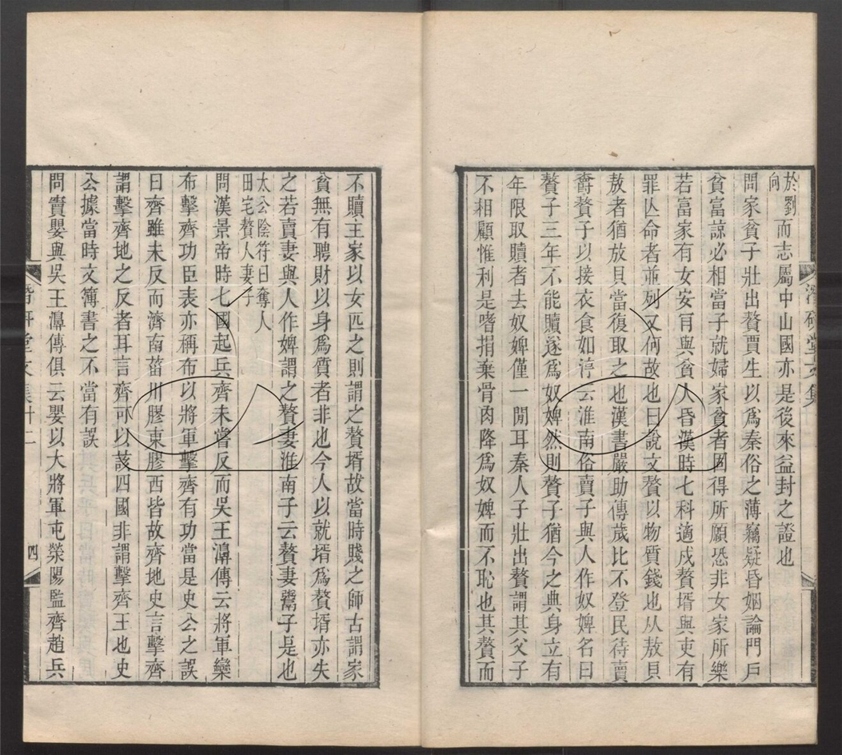 於劉
向
而志屬中山國亦是後來益封之證也
問家貧子壯出贅賈生以爲秦俗之薄竊疑昏姻論門戶
貧富諒必相當子就婦家貧者固得所願恐非女家所樂
若富家有女安肯與貧人昏漢時七科適戍贅壻與吏有
罪亾命者並列又何故也曰說文贅以物質錢也从敖貝
敖者猶放貝當復取之也漢書嚴助傳歲比不登民待賣
爵贅子以接衣食如淳云淮南俗賣子與人作奴婢名曰
贅子三年不能贖遂爲奴婢然則贅子猶今之典身立有
年限取贖者去奴婢僅一閒耳秦人子壯出贅謂其父子
不相顧惟利是嗜捐棄骨肉降爲奴婢而不恥也其贅而
不贖主家以女匹之則謂之贅壻故當時賤之師古謂家
貧無有聘財以身爲質者非也今人以就壻爲贅壻亦失
之若賣妻與人作婢謂之贅妻淮南子云贅妻鬻子是也
太公陰符曰奪人
田宅贅人妻子
問漢景帝時七國起兵齊未嘗反而吳王濞傳云將軍欒
布擊齊功臣表亦稱布以將軍擊齊有功當是史公之誤
曰齊雖未反而濟南菑川膠東膠西皆故齊地史言擊齊
謂擊齊地之反者耳言齊可以該四國非謂擊齊王也史
公據當時文簿書之不當有誤
問竇嬰與吳王濞傳俱云嬰以大將軍屯滎陽監齊趙兵
潛研堂文集卄二
四